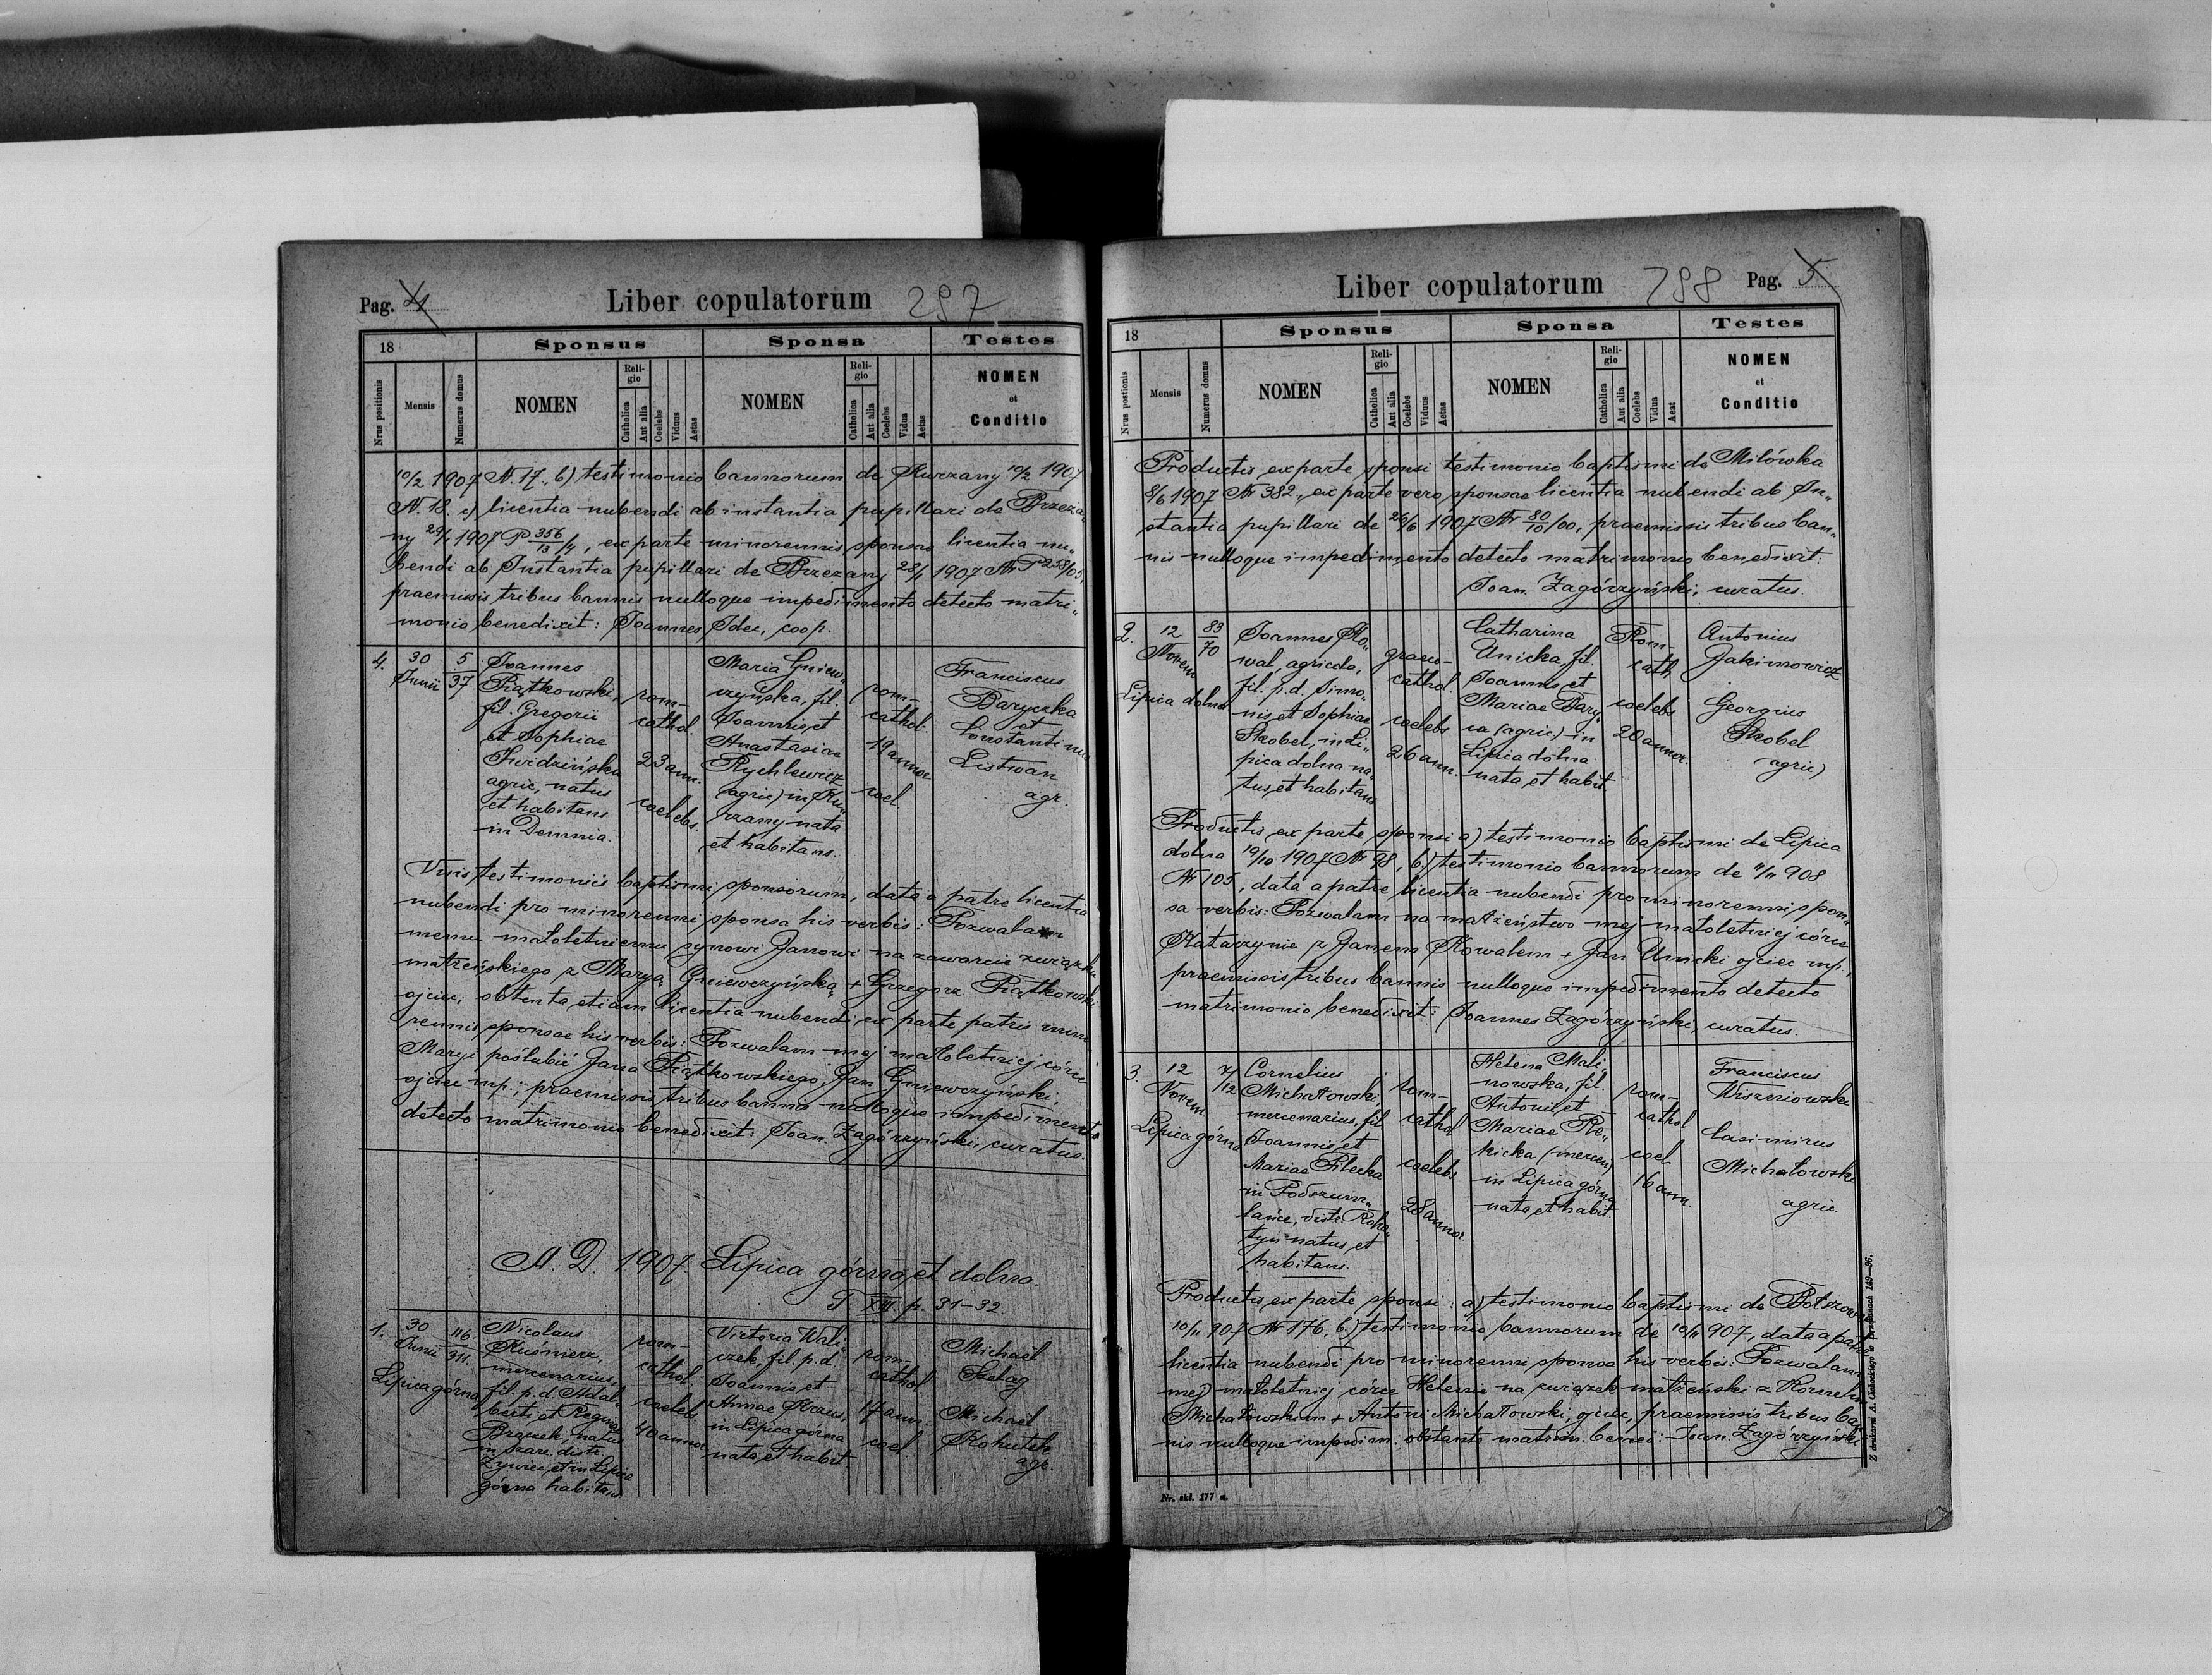 Pag. 4
Liber copulatorum 297
18
Sponsus
Sponsa
Testes
Nrus positionis
Mensis
Numerus domus
NOMEN
Religio
Catholica
Aut alia
Coelebs
Viduus
Aetas
NOMEN
Religio
Catholica
Aut alia
Coelebs
Vidua
Aetas
NOMEN
et
Conditio
10/2 1907 N. 17., b) testimonio bannorum de Kurzany 10/2 1907
N. 18. c) licentia nubendi ab instantia pupillari de Brzeża-
ny 29/1 1907 P 356/13/4, ex parte minorennis sponsae licentia nu„
bendi ab Instantia pupillari de Brzezany 28/1 1907 Nr P 258/05,
praemissis tribus bannis nulloque impedimento detecto matri„
monio benedixit: Joannes Idec, coop.
4.
30
Junii
5
37
Joannes
Piątkowski,
fil. Gregorii
et Sophiae
Świdzińska
agric, natus
et habitans
in Demnia.
rom-
cathol.
23 ann.
coelebs.
Maria Gniew„
czyńska, fil.
Joannis, et
Anastasiae
Rychlewicz
(agric) in Kur„
rzany nata
et habitans.
rom-
cathol.
19 annor
coel.
Franciscus
Baryczka
et
Constantinus
Listwan
agr.
Visis testimoniis baptismi sponsorum, data a patre licentia
nubendi pro minorenni sponsa his verbis: Pozwalam
memu małoletniemu synowi Janowi na zawarcie związku
małżeńskiego z Maryą Gniewczyńską + Grzegorz Piątkowski
ojciec, obtenta etiam licentia nubendi ex parte patris mino
rennis sponsae his verbis: Pozwalam mej małoletniej córce
Maryi poślubić Jana Piątkowskiego, Jan Gniewczyński,
ojciec mp.; praemissis tribus bannis nulloque impedimento
detecto matrimonio benedixit: Joan. Zagórzyński, curatus.
A. D. 1907 Lipica górna et dolna.
T XIII. p. 31-32.
1.
30
Junii
Lipica górna
116
311.
Nicolaus
Kuśnierz,
mercenarius,
fil. p. d. Adal„
berti et Reginae
Brąnek, natus
in Szare, distr.
Żywiec, et in Lipica
górna habitans
rom-
cathol.
coelebs.
40 annor
Victoria Wali„
czek, fil. p. d.
Joannis, et
Annae Kraus,
in Lipica górna
nata, et habit
rom.
cathol.
17 ann.
coel.
Michael
Szeląg
Michael
Kohutek
agr.
Liber copulatorum 298 Pag. 5
18
Sponsus
Sponsa
Testes
Nrus postionis
Mensis
Numerus domus
NOMEN
Religio
Catholica
Aut alia
Coelebs
Viduus
Aetas
NOMEN
Religio
Catholica
Aut alia
Coelebs
Vidua
Aeat
NOMEN
et
Conditio
Productis ex parte sponsi testimonio baptismi de Milówka
8/6 1907 Nr 382., ex parte vero sponsae licentia nubendi ab In„
stantia pupillari de 26/6 1907 Nr 80/10/00, praemissis tribus ban„
nis nulloque impedimento detecto matrimonio benedixit:
Joan. Zagórzyński, curatus.
2.
12
Novem
Lipica dolna
83
70
Joannes Ko„
wal, agricola,
fil. p. d. Simo„
nis, et Sophiae
Skobel, in Li„
pica dolna na„
tus, et habitans
graeco-
cathol.
coelebs
26 ann.
Catharina
Unicka, fil.
Joannis, et
Mariae Bary„
ca (agric) in
Lipica dolna
nata, et habit
Rom.
cath,
coelebs
20 annor.
Antonius
Jakimowicz
Georgius
Skobel
(agric)
Productis, ex parte sponsi a) testimonio baptismi de Lipica
dolna 19/10 1907 Nr 98, b) testimonio bannorum de 11/11 908
Nr 105, data a patre licentia nubendi pro minorenni spon„
sa verbis: Pozwalam na małżeństwo mej małoletniej córce
Katarzynie z Janem Kowalem + Jan Unicki ojciec mp.,
praemissis tribus bannis nulloque impedimento detecto
matrimonio benedixit: Joannes Zagórzyński, curatus.
3.
12
Novem
Lipica górna
7
112
Cornelius
Michałowski,
mercenarius, fil
Joannis, et
Mariae Pilecka
in Podszum„
lańce, distr Roha„
tyn natus, et
habitans.
rom-
cathol
coelebs
28 annor.
Helena Mali„
nowska, fil.
Antonii, et
Mariae Re„
kicka, (mercen)
in Lipica górna
nata, et habit.
rom-
cathol
coel
16 ann.
Franciscus
Wiszniowski
Casimirus
Michałowski
agric.
Productis, ex parte sponsi: a) testimonio baptismi de Bołszowce
10/11 907 Nr 176, b.) testimonio bannorum de 10/11 907, data a patre
licentia nubendi pro minorenni sponsa his verbis: Pozwalam
mej małoletniej córce Helenie na związek małżeński z Kornelim
Michałowskim + Antoni Michałowski, ojciec, praemissis tribus ban
nis nulloque impedim. obstante matrim. bened: Joan. Zagórzyński
Nr. skl. 177 a.
Z drukarni A. Cichockiego w Brzeżanach 149—96.